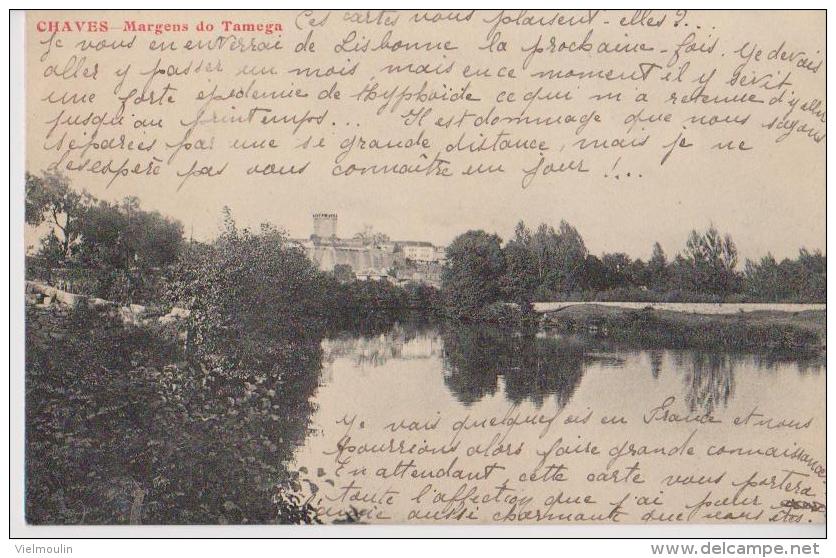 CHAVES—Margens do Tamega
Ces cartes vous plaisent-elles ?...
Je vous en enverrai de Lisbonne la prochaine-fois. Je devais
aller y passer un mois, mais en ce moment il y sévit
une forte epidemie de thyphoïde ce qui m'a retenue d'y aller
jusqu'au printemps... Il est dommage que nous soyons
séparées par une si grande distance, mais je ne
desespère pas vous connaître un jour !...
Je vais quelquefois en France et nous
pourrions alors faire grande connaissance
En attendant cette carte vous portera
toute l'affection que j'ai pour
amie aussi charmante que vous êtes.
Vielmoulin
http://www.delcampe.net